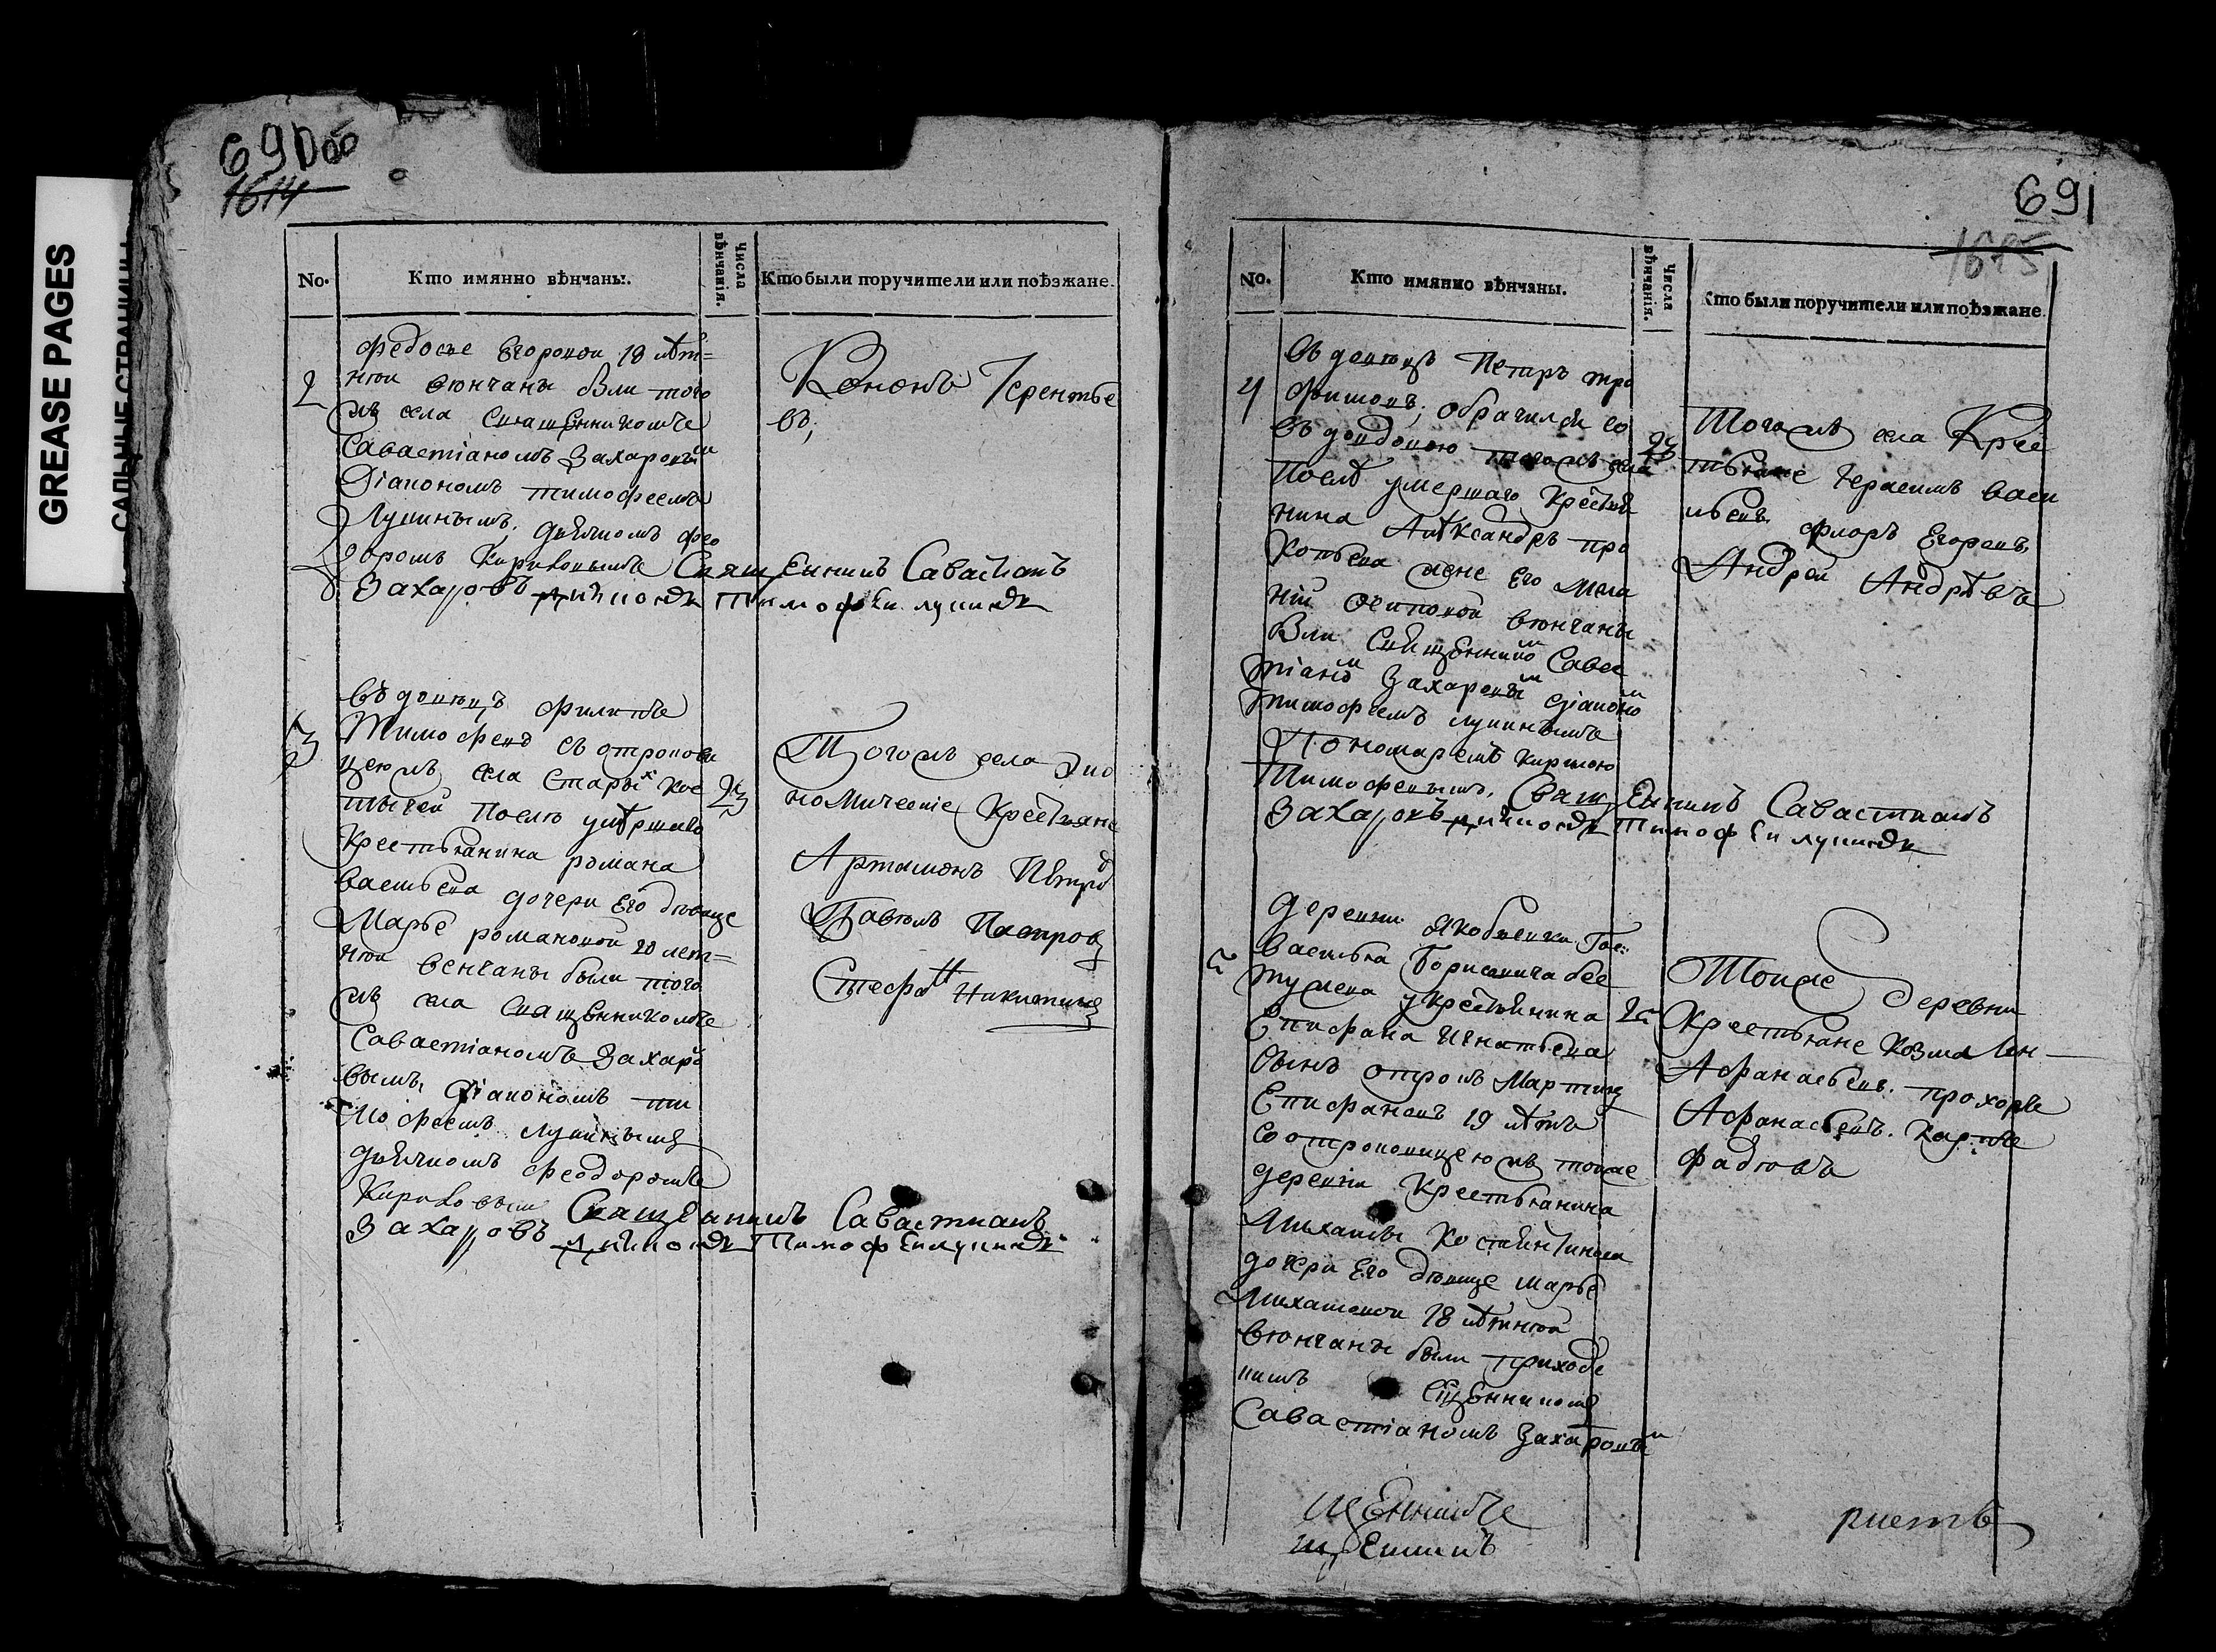 GREASE PAGES
САЛЬНЫЕ СТРАНИЦЫ
690об
1614
No.
Кто имянно вѣнчаны.
Числа вѣнчанія.
Кто были поручители или поѣзжане.
2
Федосье Егоровой 18 лѣт=
ней вѣнчаны были того
жъ села священникомъ
Савастіаномъ Захаровым
Діакономъ Тимофеемъ
Лупинымъ, дьячкомъ Фео
доромъ Кириловымъ Священникъ Савастианъ
Захаровъ диаконъ Тимофей Лупинъ
Кононъ Терентье
въ;
3
Вдовецъ Филипъ
Тимофеев съ отрокови
цею жъ села Стары Кос
тычей после умѣршаго
Крестьянина романа
Васильева дочери Его девице
Марье романовой 20 лет=
ней венчаны были того
жъ села священникомъ
Савастіаномъ Захаро
вымъ, Діакономъ ти
мофеемъ Лупинымъ
дьячкомъ Феодоромъ
Кириловым Священникъ Савастианъ
Захаровъ диаконъ Тимофей Лупинъ
23
Того жъ села
Крестьяне
Артамонъ Петров
Павелъ Петров
Стефан Никитин
691
1615
No.
Кто имянно вѣнчаны.
Числа вѣнчанія.
Кто были поручители или поѣзжане.
4
Вдовецъ Петръ тро
фимовъ, обрачился со
вдовою того жъ села
послѣ умершаго Крестья
нина Алѣксандръ про
кофьева жене Его Мела
ніи Осиповой венчаны
были священнико Савас
тіано Захаровым Діаконо
тимофеемъ лупинымъ
Пономаремъ
Тимофевымъ. Священникъ Савастианъ
Захаровъ диаконъ Тимофей лупинъ
23
Того жъ села Крес
тьяне Герасимъ Васи
льевъ. Флоръ Егоровъ,
Андрей Андрѣевъ
5
деревни Якобьевки Гос:
Василья Борисовича Бес
тужева у крестьянина
Епифана Игнатьева
сынъ отрокъ Мартин
Епифановъ 19 лѣтъ
со отроковицею жъ тоиже
деревни Крестьянина
Михаилы Костентинова
дочери Его девице марье
Михаиловой 18 лѣтней
венчаны были приходс
кимъ священником
Савастіаномъ Захаровым
25
Тоиже деревни
Крестьяне Козма
Афанасьевъ. прохоръ
Афанасьевъ. Карпъ
Фадеевъ
щенникъ
щенникъ